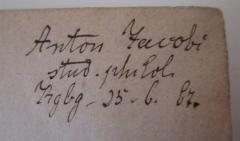 Anton Jacobi
stud. philol.
Kgbg. 25. 6. 87.